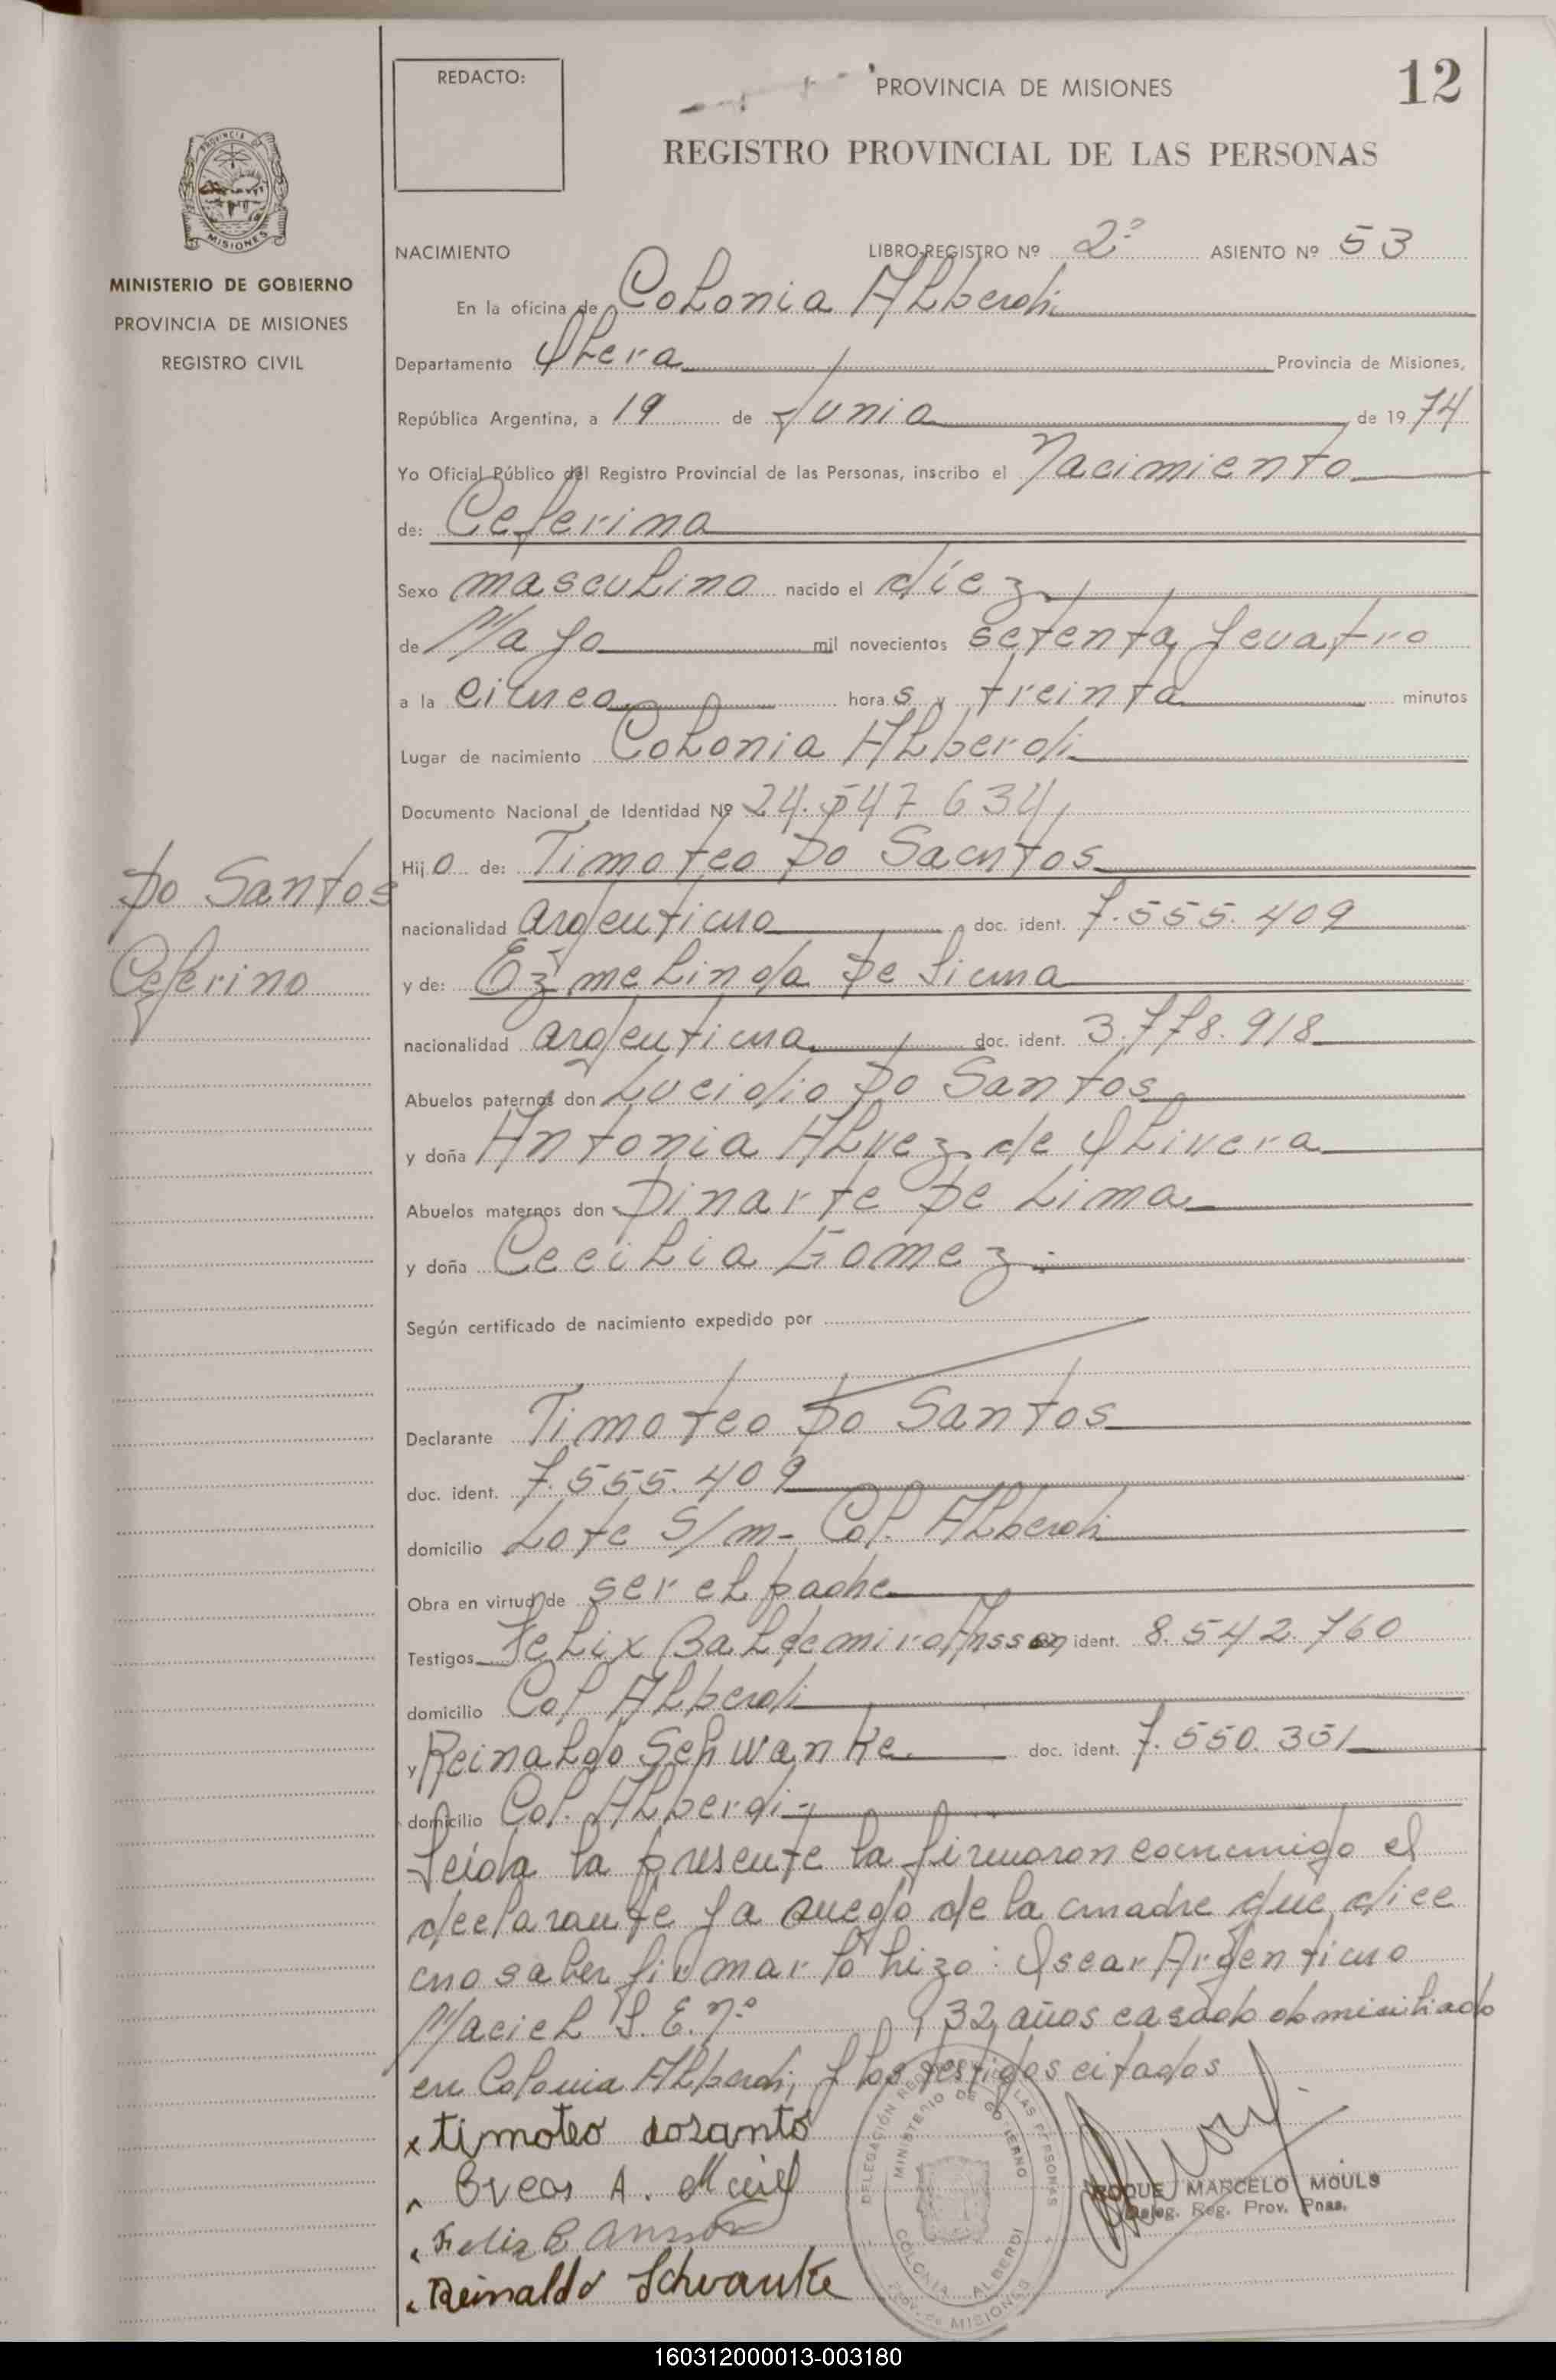 REDACTO:
PROVINCIA DE MISIONES
12
REGISTRO PROVINCIAL DE LAS PERSONAS
PROVINCIA
MISIONES
MINISTERIO DE GOBIERNO
PROVINCIA DE MISIONES
REGISTRO CIVIL
NACIMIENTO LIBRO-REGISTRO Nº 2º ASIENTO Nº 53
En la oficina de Colonia Alberdi
Departamento Obera Provincia de Misiones,
República Argentina, a 19 de Junio de 1974
Yo Oficial Público del Registro Provincial de las Personas, inscribo el Nacimiento
de: Ceferino
Sexo masculino nacido el diez
de Mayo mil novecientos setenta y cuatro
a la cinco hora s y treinta minutos
Lugar de nacimiento Colonia Alberdi
Documento Nacional de Identidad Nº 24.547.634
Hijo de: Timoteo Do Santos
Do Santos
Ceferino
nacionalidad argentino doc. ident. 7.555.409
y de: Ezmelinda De Lima
nacionalidad argentina doc. ident. 3.778.918
Abuelos paternos don Lucidio Do Santos
y doña Antonia Alvez de Olivera
Abuelos maternos don Dinarte De Lima
y doña Cecilia Gomez.
Según certificado de nacimiento expedido por
Declarante Timoteo Do Santos
doc. ident. 7.555.409
domicilio Lote S/n- Col. Alberdi
Obra en virtud de ser el padre
Testigos Felix Baldemiro ident. 8.542.760
domicilio Col. Alberdi
y Reinaldo Schwanke doc. ident. 7.550.351
domicilio Col. Alberdi-
Leida la presente la firmaron conmigo el
declarante y a ruego de la madre que dice
no saber firmar lo hizo: Oscar Argentino
Maciel L.E.nº , 32 años casado domiciliado
en Colonia Alberdi, y los testigos citados
x timoteo dosanto
A. Maciel
Felix B
Reinaldo Schwanke
DELEGACIÓN REG. DE LAS PERSONAS
MINISTERIO DE GOBIERNO
COLONIA ALBERDI
Prov. de MISIONES
ROQUE MARCELO MOULS
Deleg. Reg. Prov. Pnas.
160312000013-003180